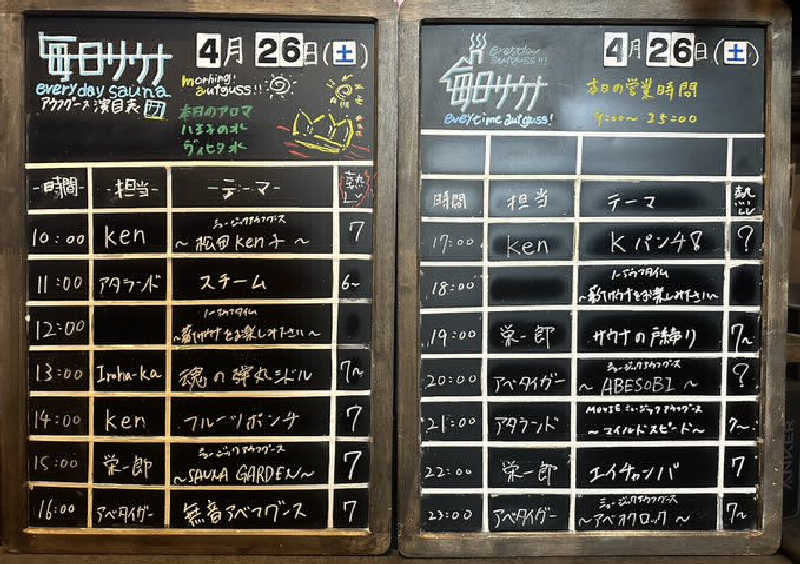 毎日サウナ
4月26日(土)
everyday sauna
アウフグース演目表
morning!
autguss!!
本日のアロマ
八王子の水
ヴィヒタ水
-時間- -担当- -テーマ- 熱レベ
10:00 ken ミュージックアウフグース ～松田ken子～ 7
11:00 アタランド スチーム 6~
12:00 ～薪サウナをお楽しみ下さい～
13:00 Iroha-ka 魂の弾丸シドル 7~
14:00 ken フルーツポンチ 7
15:00 栄一郎 ミュージックアウフグース ～SAUNA GARDEN～ 7
16:00 アベタイガー 無音アベフグース 7
everyday
autguss!!!
毎日サウナ
4月26日(土)
everytime autguss!
本日の営業時間
9:00～25:00
時間 担当 テーマ 熱レベ
17:00 ken Kパンチ8 ?
18:00 ～薪サウナをお楽しみ下さい～
19:00 栄一郎 サウナの戸締り 7~
20:00 アベタイガー ミュージックアウフグース ～ABESOBI～ ?
21:00 アタランド MOVIE ミュージックアウフグース ～マイルドスピード～ 7~
22:00 栄一郎 エイチャンバ 7
23:00 アベタイガー ミュージックアウフグース ～アベオクロック～ 7~
ANKER